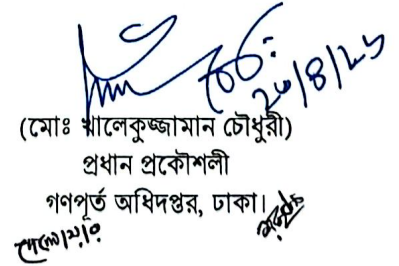 ২০/৪/২৬
(মোঃ খালেকুজ্জামান চৌধুরী)
প্রধান প্রকৌশলী
গণপূর্ত অধিদপ্তর, ঢাকা।